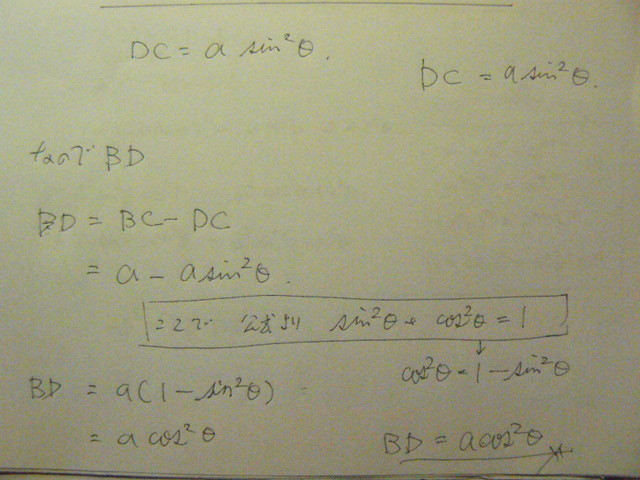 DC = a sin²θ.
DC = a sin²θ.
なので BD
BD = BC - DC
= a - a sin²θ.
ここで 公式より sin²θ + cos²θ = 1
↓
cos²θ = 1 - sin²θ
BD = a(1 - sin²θ)
= a cos²θ
BD = a cos²θ